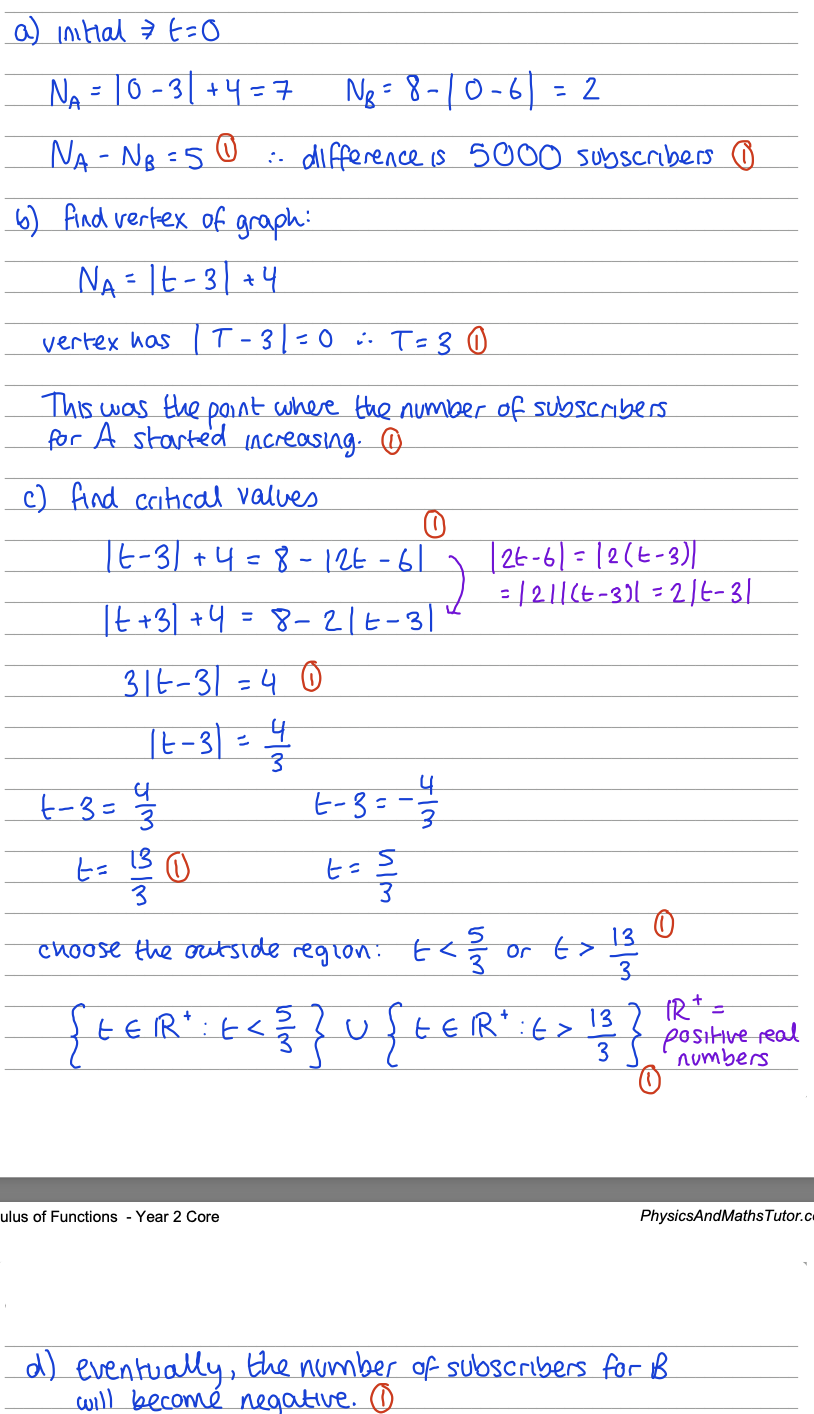 a) initial ⇒ t=0
N_A = |0-3| +4 = 7    N_B = 8-|0-6| = 2
N_A - N_B = 5 ① ∴ difference is 5000 subscribers ①
b) find vertex of graph:
N_A = |t-3| +4
vertex has |T-3| = 0 ∴ T=3 ①
This was the point where the number of subscribers
for A started increasing. ①
c) find critical values
①
|t-3| +4 = 8 - |2t-6|    |2t-6| = |2(t-3)|
= |2||(t-3)| = 2|t-3|
|t+3| +4 = 8-2|t-3|
3|t-3| = 4 ①
|t-3| = 4/3
t-3 = 4/3    t-3 = -4/3
t = 13/3 ①    t = 5/3
choose the outside region: t < 5/3 or t > 13/3 ①
{ t ∈ ℝ⁺ : t < 5/3 } ∪ { t ∈ ℝ⁺ : t > 13/3 } ℝ⁺ =
positive real
numbers
①
ulus of Functions - Year 2 Core    PhysicsAndMathsTutor.c
d) eventually, the number of subscribers for B
will become negative. ①